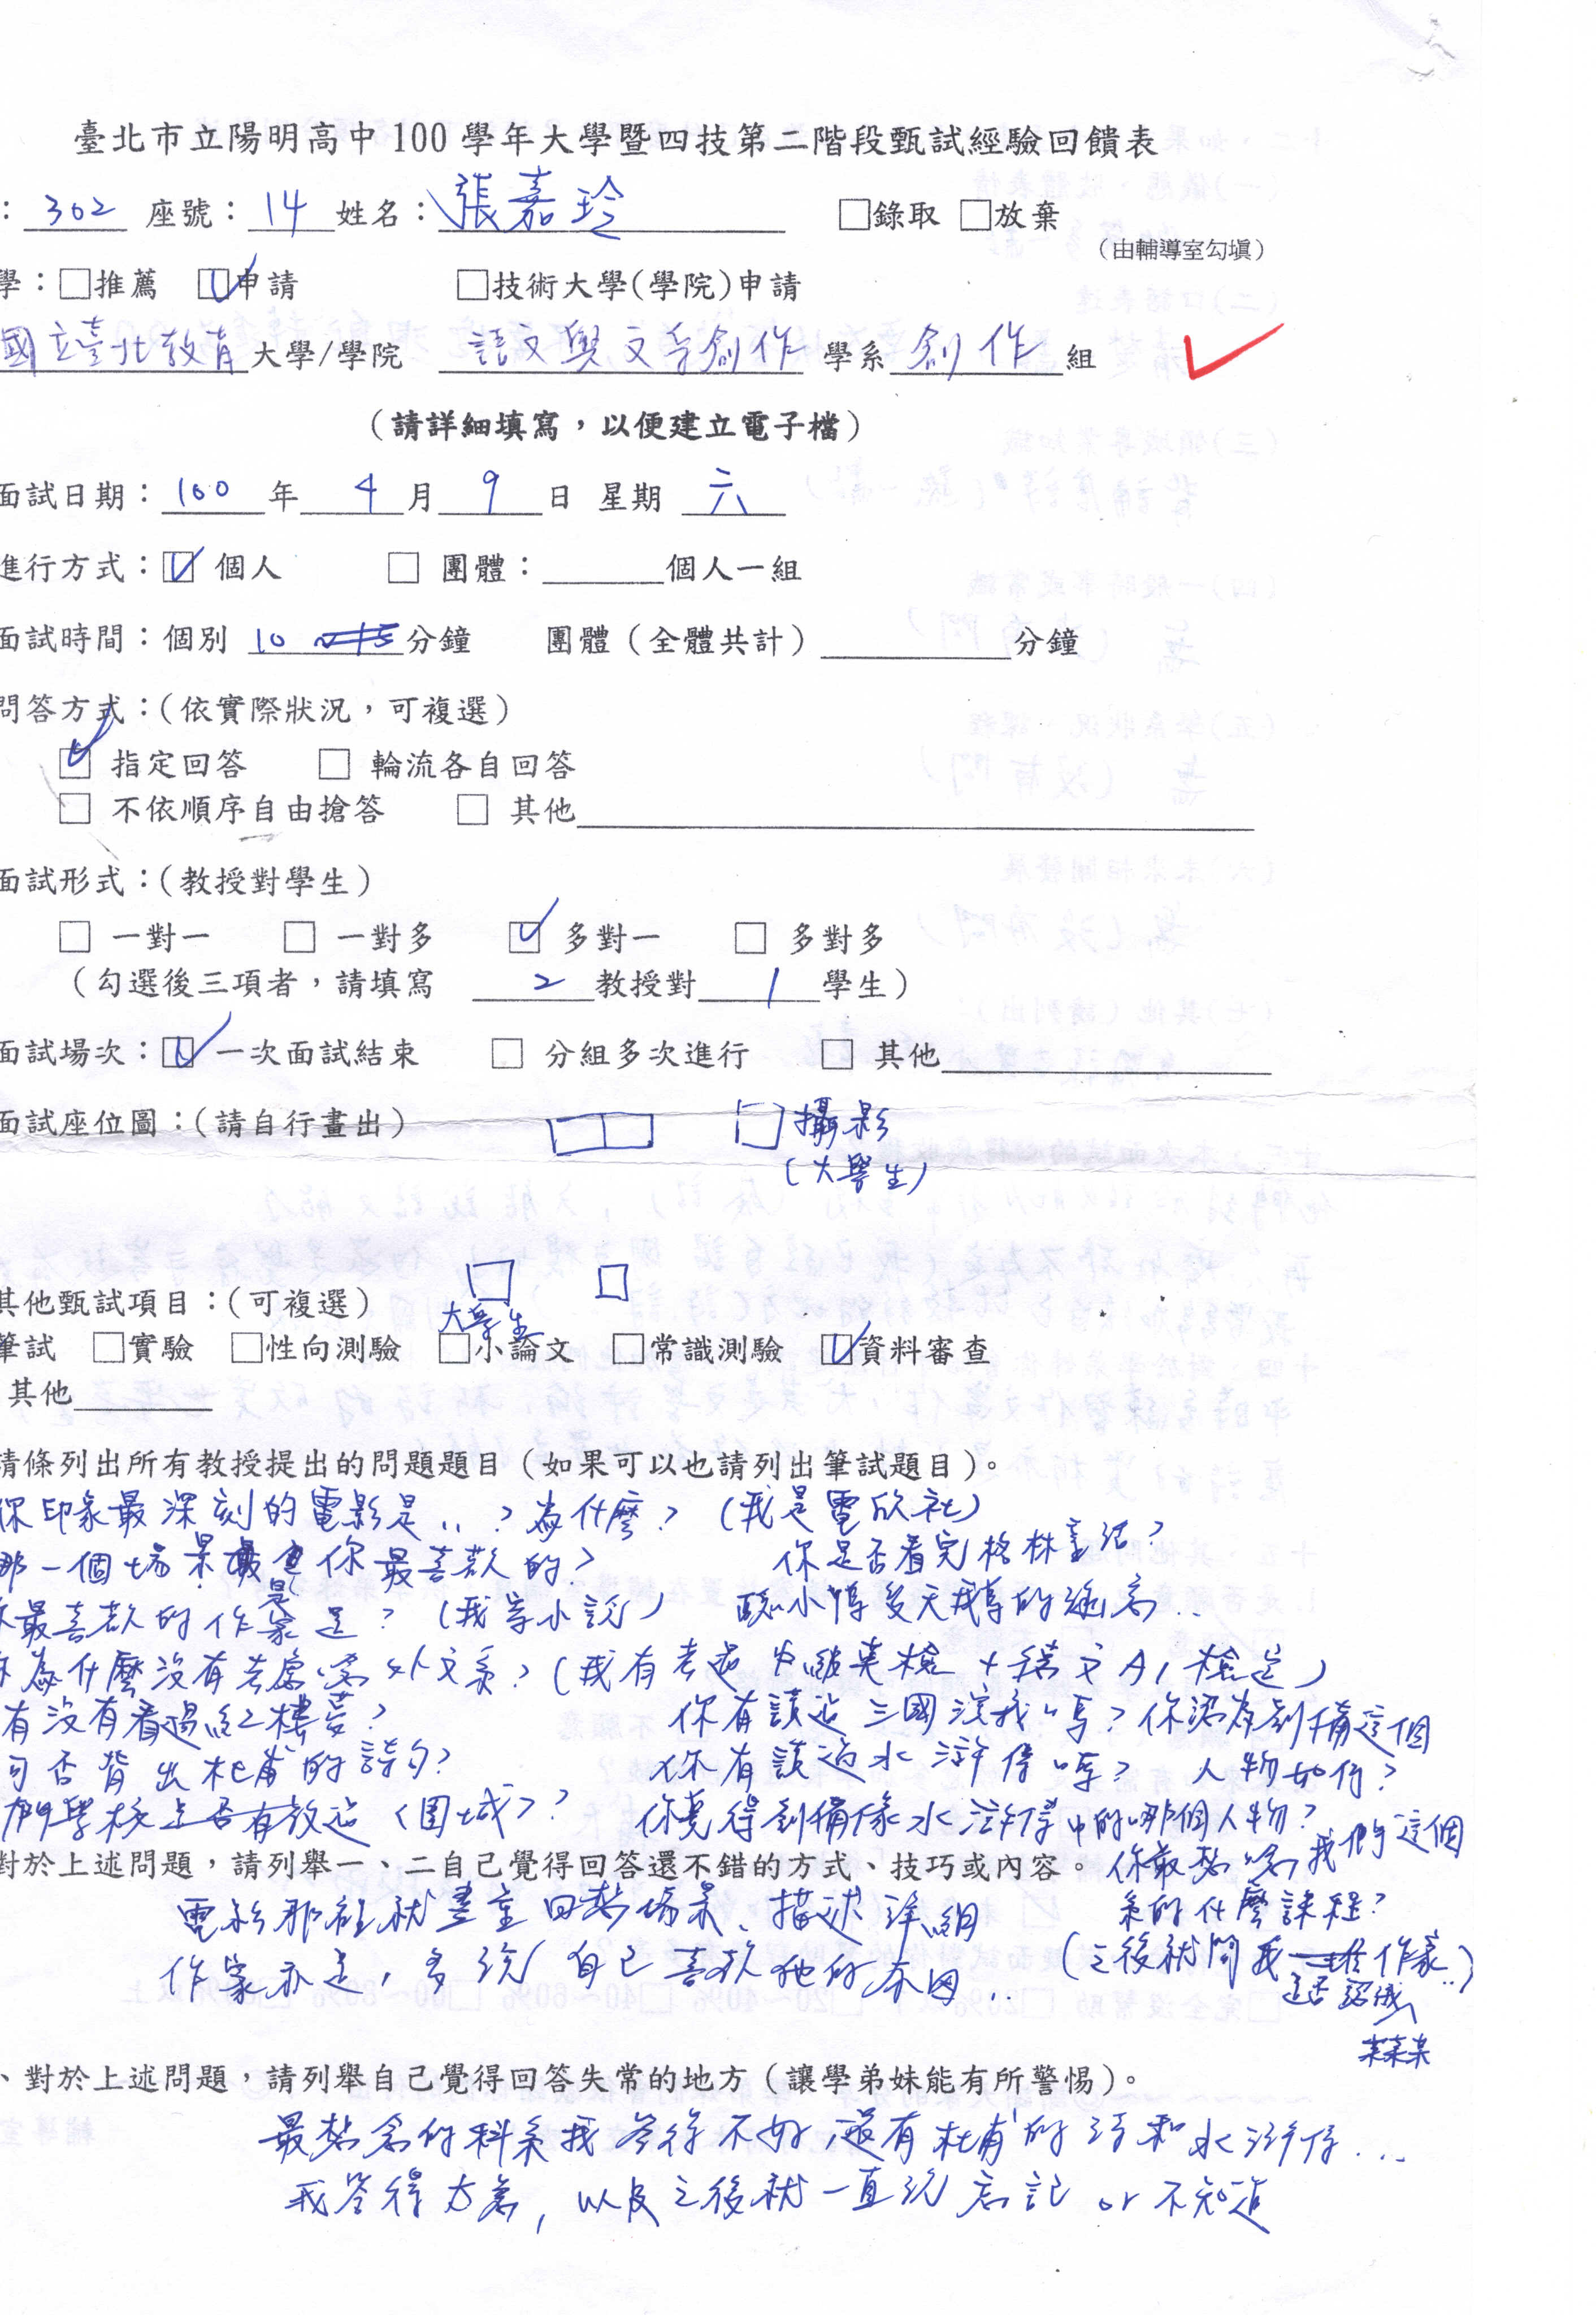 臺北市立陽明高中100學年大學暨四技第二階段甄試經驗回饋表
：302 座號：14 姓名：張嘉玲 □錄取 □放棄
（由輔導室勾填）
學：□推薦 ☑申請 □技術大學(學院)申請
國立臺北教育大學/學院 語文與文字創作學系創作組
（請詳細填寫，以便建立電子檔）
面試日期：100年4月9日 星期六
進行方式：☑ 個人 □ 團體：______個人一組
面試時間：個別 10 分鐘 團體（全體共計）______分鐘
問答方式：(依實際狀況，可複選)
☑ 指定回答 □ 輪流各自回答
□ 不依順序自由搶答 □ 其他
面試形式：(教授對學生)
□ 一對一 □ 一對多 ☑ 多對一 □ 多對多
（勾選後三項者，請填寫 2 教授對 1 學生）
面試場次：☑ 一次面試結束 □ 分組多次進行 □ 其他
面試座位圖：(請自行畫出) 攝影
(大學生)
其他甄試項目：(可複選)
大學生
筆試 □實驗 □性向測驗 □小論文 □常識測驗 ☑資料審查
其他
請條列出所有教授提出的問題題目（如果可以也請列出筆試題目）。
你印象最深刻的電影是..？為什麼？（我是電欣社）
那一個場景是你最喜歡的？ 你是否看完格林童話？
最喜歡的作家是？（我寫小說） 醜小鴨變天鵝的
你為什麼沒有考慮 外文系？（我有考過中級英檢＋德文A1檢定）
有沒有看過紅樓夢？ 你有讀過三國演義嗎？你認為劉備這個
可否背出杜甫的詩句？ 你有讀過水滸傳嗎？ 人物如何？
們學校是否有教過〈圍城〉？ 你覺得劉備像水滸傳中的哪個人物？
對於上述問題，請列舉一、二自己覺得回答還不錯的方式、技巧或內容。 你最想念我們這個
電影那種就盡量回想場景、描述詳細 系的什麼課程？
作家亦是，多說自己喜歡他的原因.. （之後就問我 作家..）
是否認識
某某某
、對於上述問題，請列舉自己覺得回答失常的地方（讓學弟妹能有所警惕）。
最想念的科系我答得不好，還有杜甫的詩和水滸傳...
我答得 ，以及之後就一直說忘記 or 不知道